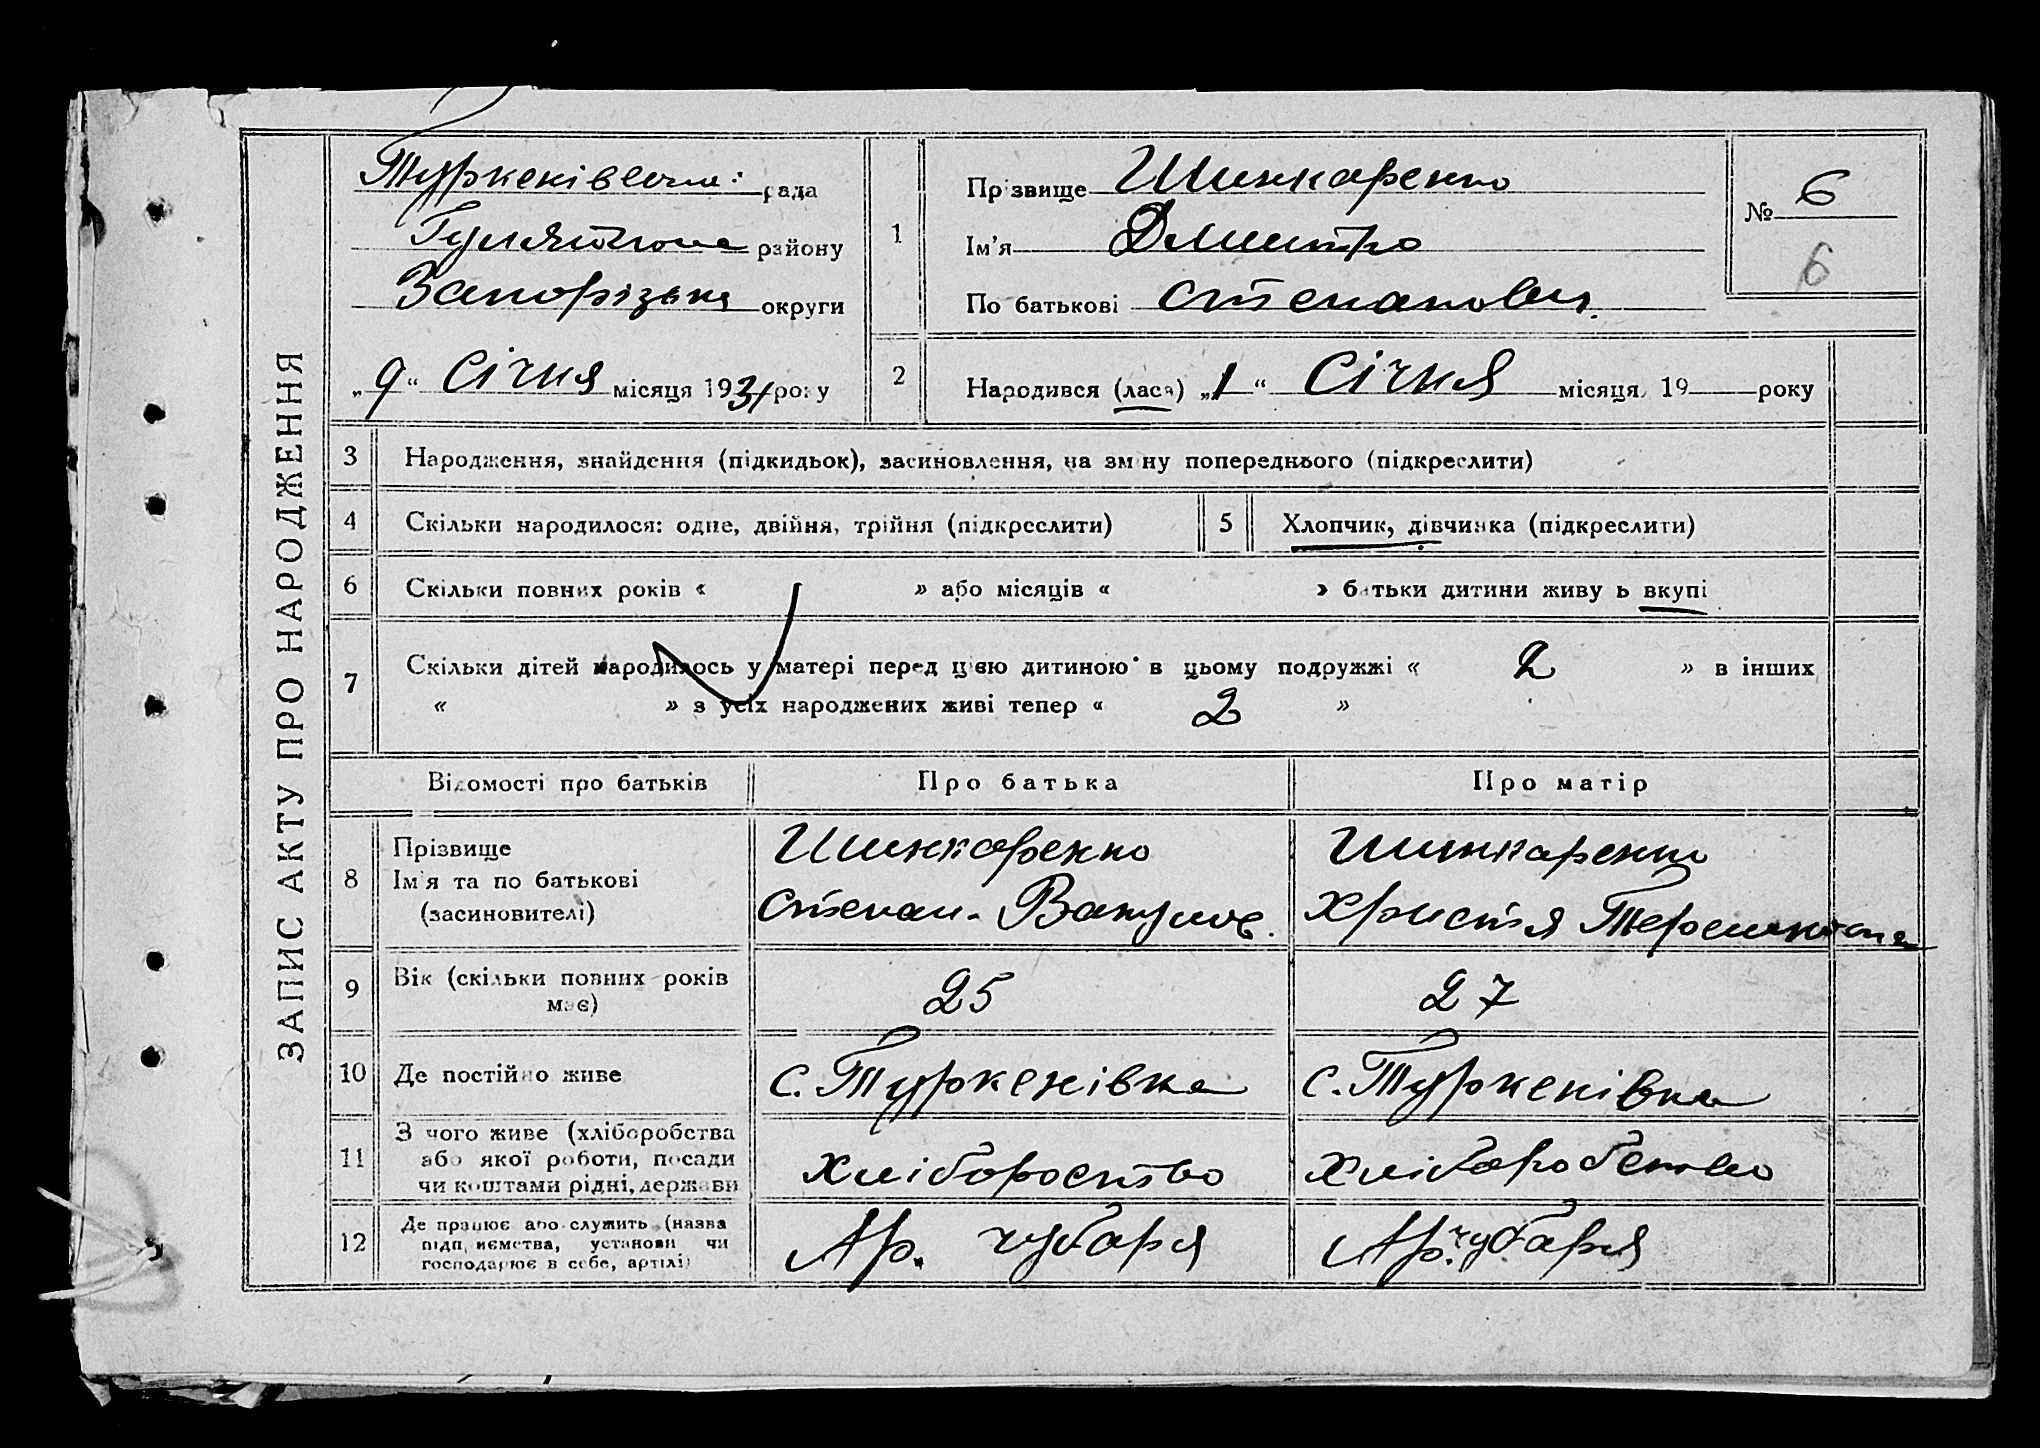 ЗАПИС АКТУ ПРО НАРОДЖЕННЯ
рада
району
Запорізька округи
„9“ Січня місяця 1931 року
1
Прізвище Шинкаренко
Ім'я Дмитро
По батькові Степанович
№ 6
6
2
Народився (лася) „1“ Січня місяця, 19 року
3 Народження, знайдення (підкидьок), засиновлення, на зміну попереднього (підкреслити)
4 Скільки народилося: одне, двійня, трійня (підкреслити)
5 Хлопчик, дівчинка (підкреслити)
6 Скільки повних років « » або місяців « » батьки дитини живуть вкупі
7 Скільки дітей народилось у матері перед цією дитиною в цьому подружжі « 2 » в інших
« » з усіх народжених живі тепер « 2 »
Відомості про батьків
Про батька
Про матір
8
Прізвище
Ім'я та по батькові
(засиновителі)
Шинкаренко
Степан
Шинкаренко
Христя
9
Вік (скільки повних років
має)
25
27
10
Де постійно живе
с. Туркенівка
с. Туркенівка
11
З чого живе (хліборобства
або якої роботи, посади
чи коштами рідні, держави
Хлібороство
Хліборобство
12
Де працює або служить (назва
підприємства, установи чи
господарює в себе, артілі)
Ар. Чубаря
Ар. Чубаря